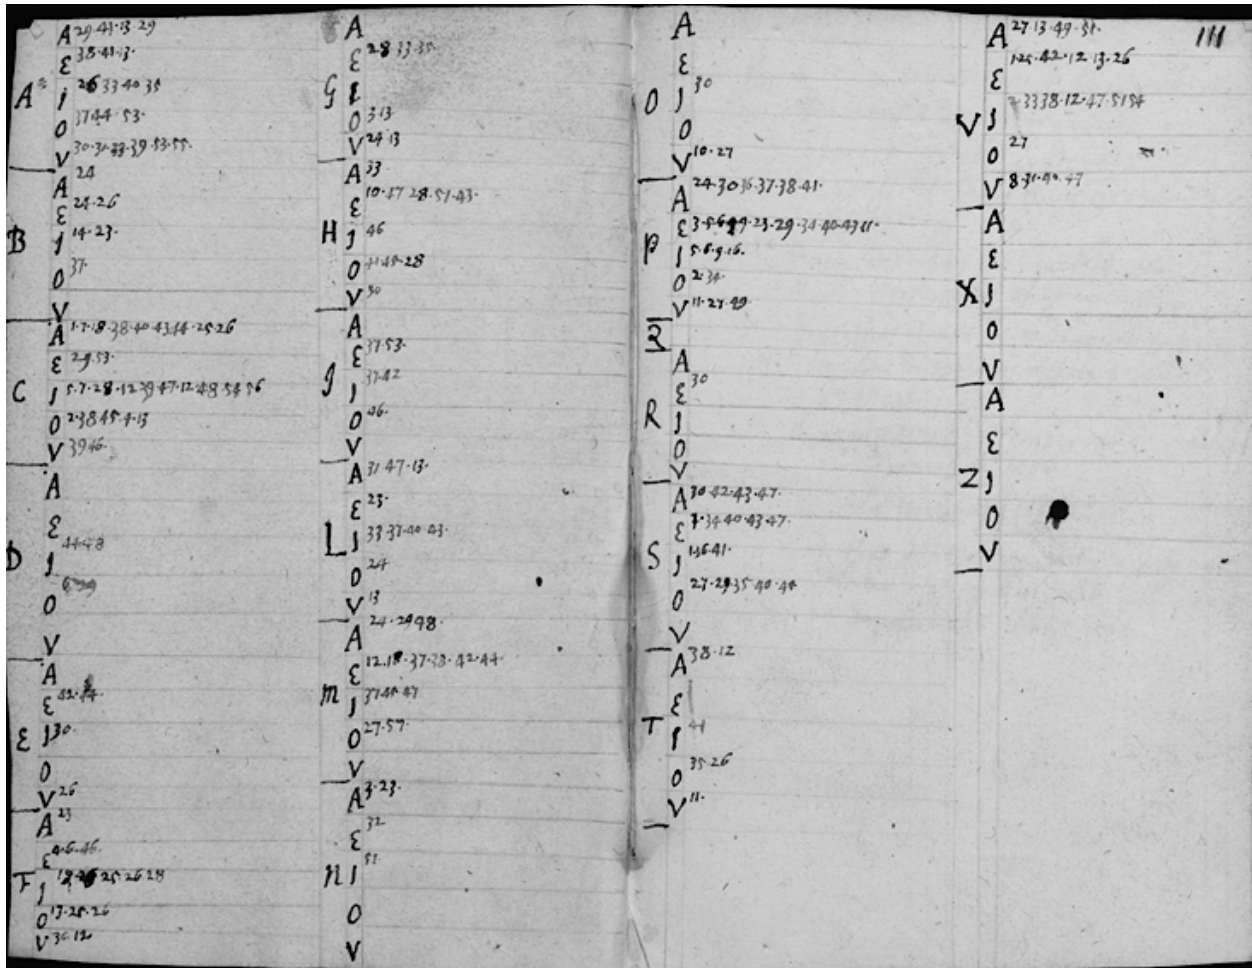 A 29.41.13.29
Ɛ 38.41.13.
A I 26 33 40 35
O 37 44 . 53.
V 30.31.33.39.53.55.
A 24
Ɛ 24.26
B I 14.23.
O 37.
V
A 1.7.18.38.40.43.44.25.26
Ɛ 29.53.
C I 5.7.28.12 39 47.12.48.54 56
O 2.38 45.4.13
V 39 46.
A
Ɛ
D I 44 48
O
V
A
Ɛ 42.44
Ɛ I 30.
O
V 26
A 23
Ɛ 4.6.46.
F I 25.26 28
O 13.25.26
V 36.12
A
Ɛ 28 33 35
G I
O 3 13
V 24.13
A 33
Ɛ 10.47 28.51.43.
H I 46
O 41.45.28
V 30
A
Ɛ 37.53.
J I 37.42
O 46.
V
A 31.47.13.
Ɛ 23.
L I 33 37.40.43.
O 24
V 13
A 24.29 48.
Ɛ 12.18.37.38.42.44.
m I 37 45 47
O 27.57.
V
A 3.23.
Ɛ 32
n I 51
O
V
A
Ɛ
O I 30
O
V 10.27
A 24.30 36.37.38.41.
Ɛ 3.5.6 19.23.29.34.40.43 11.
P I 5.6.9.16.
O 2.34
V 11.27.49
Q
A
Ɛ 30
R I
O
V
A 30.42.43.47.
Ɛ 7.34 40.43.47.
S I 36.41.
O 27.29 35 40.44
V
A 38.12
Ɛ
T I 41
O 35.26
V 11.
111
A 27.13.49.51.
Ɛ 1.25.42.12.13.26
V I 33 38.12.47.51 54
O 27
V 8.31.40.47
A
Ɛ
X I
O
V
A
Ɛ
Z I
O
V